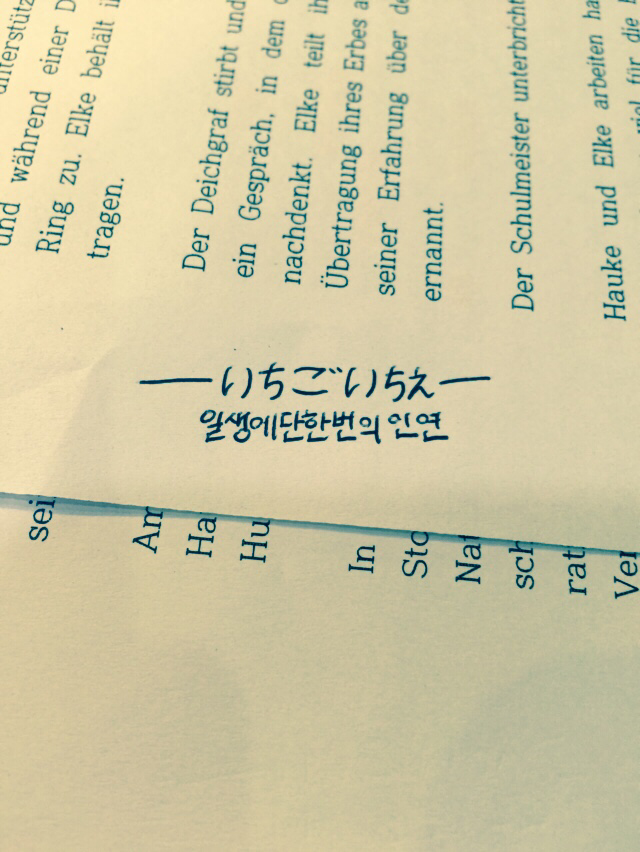 unterstütz
und während einer D
Ring zu. Elke behält i
tragen.
Der Deichgraf stirbt und
ein Gespräch, in dem
nachdenkt. Elke teilt ih
Übertragung ihres Erbes a
seiner Erfahrung über de
ernannt.
Der Schulmeister unterbricht
Hauke und Elke arbeiten ha
für die
—いちごいちえ—
일생에단한번의 인연
sei
Am
Ha
Hu
In
Sto
Nat
sch
rat
Ver